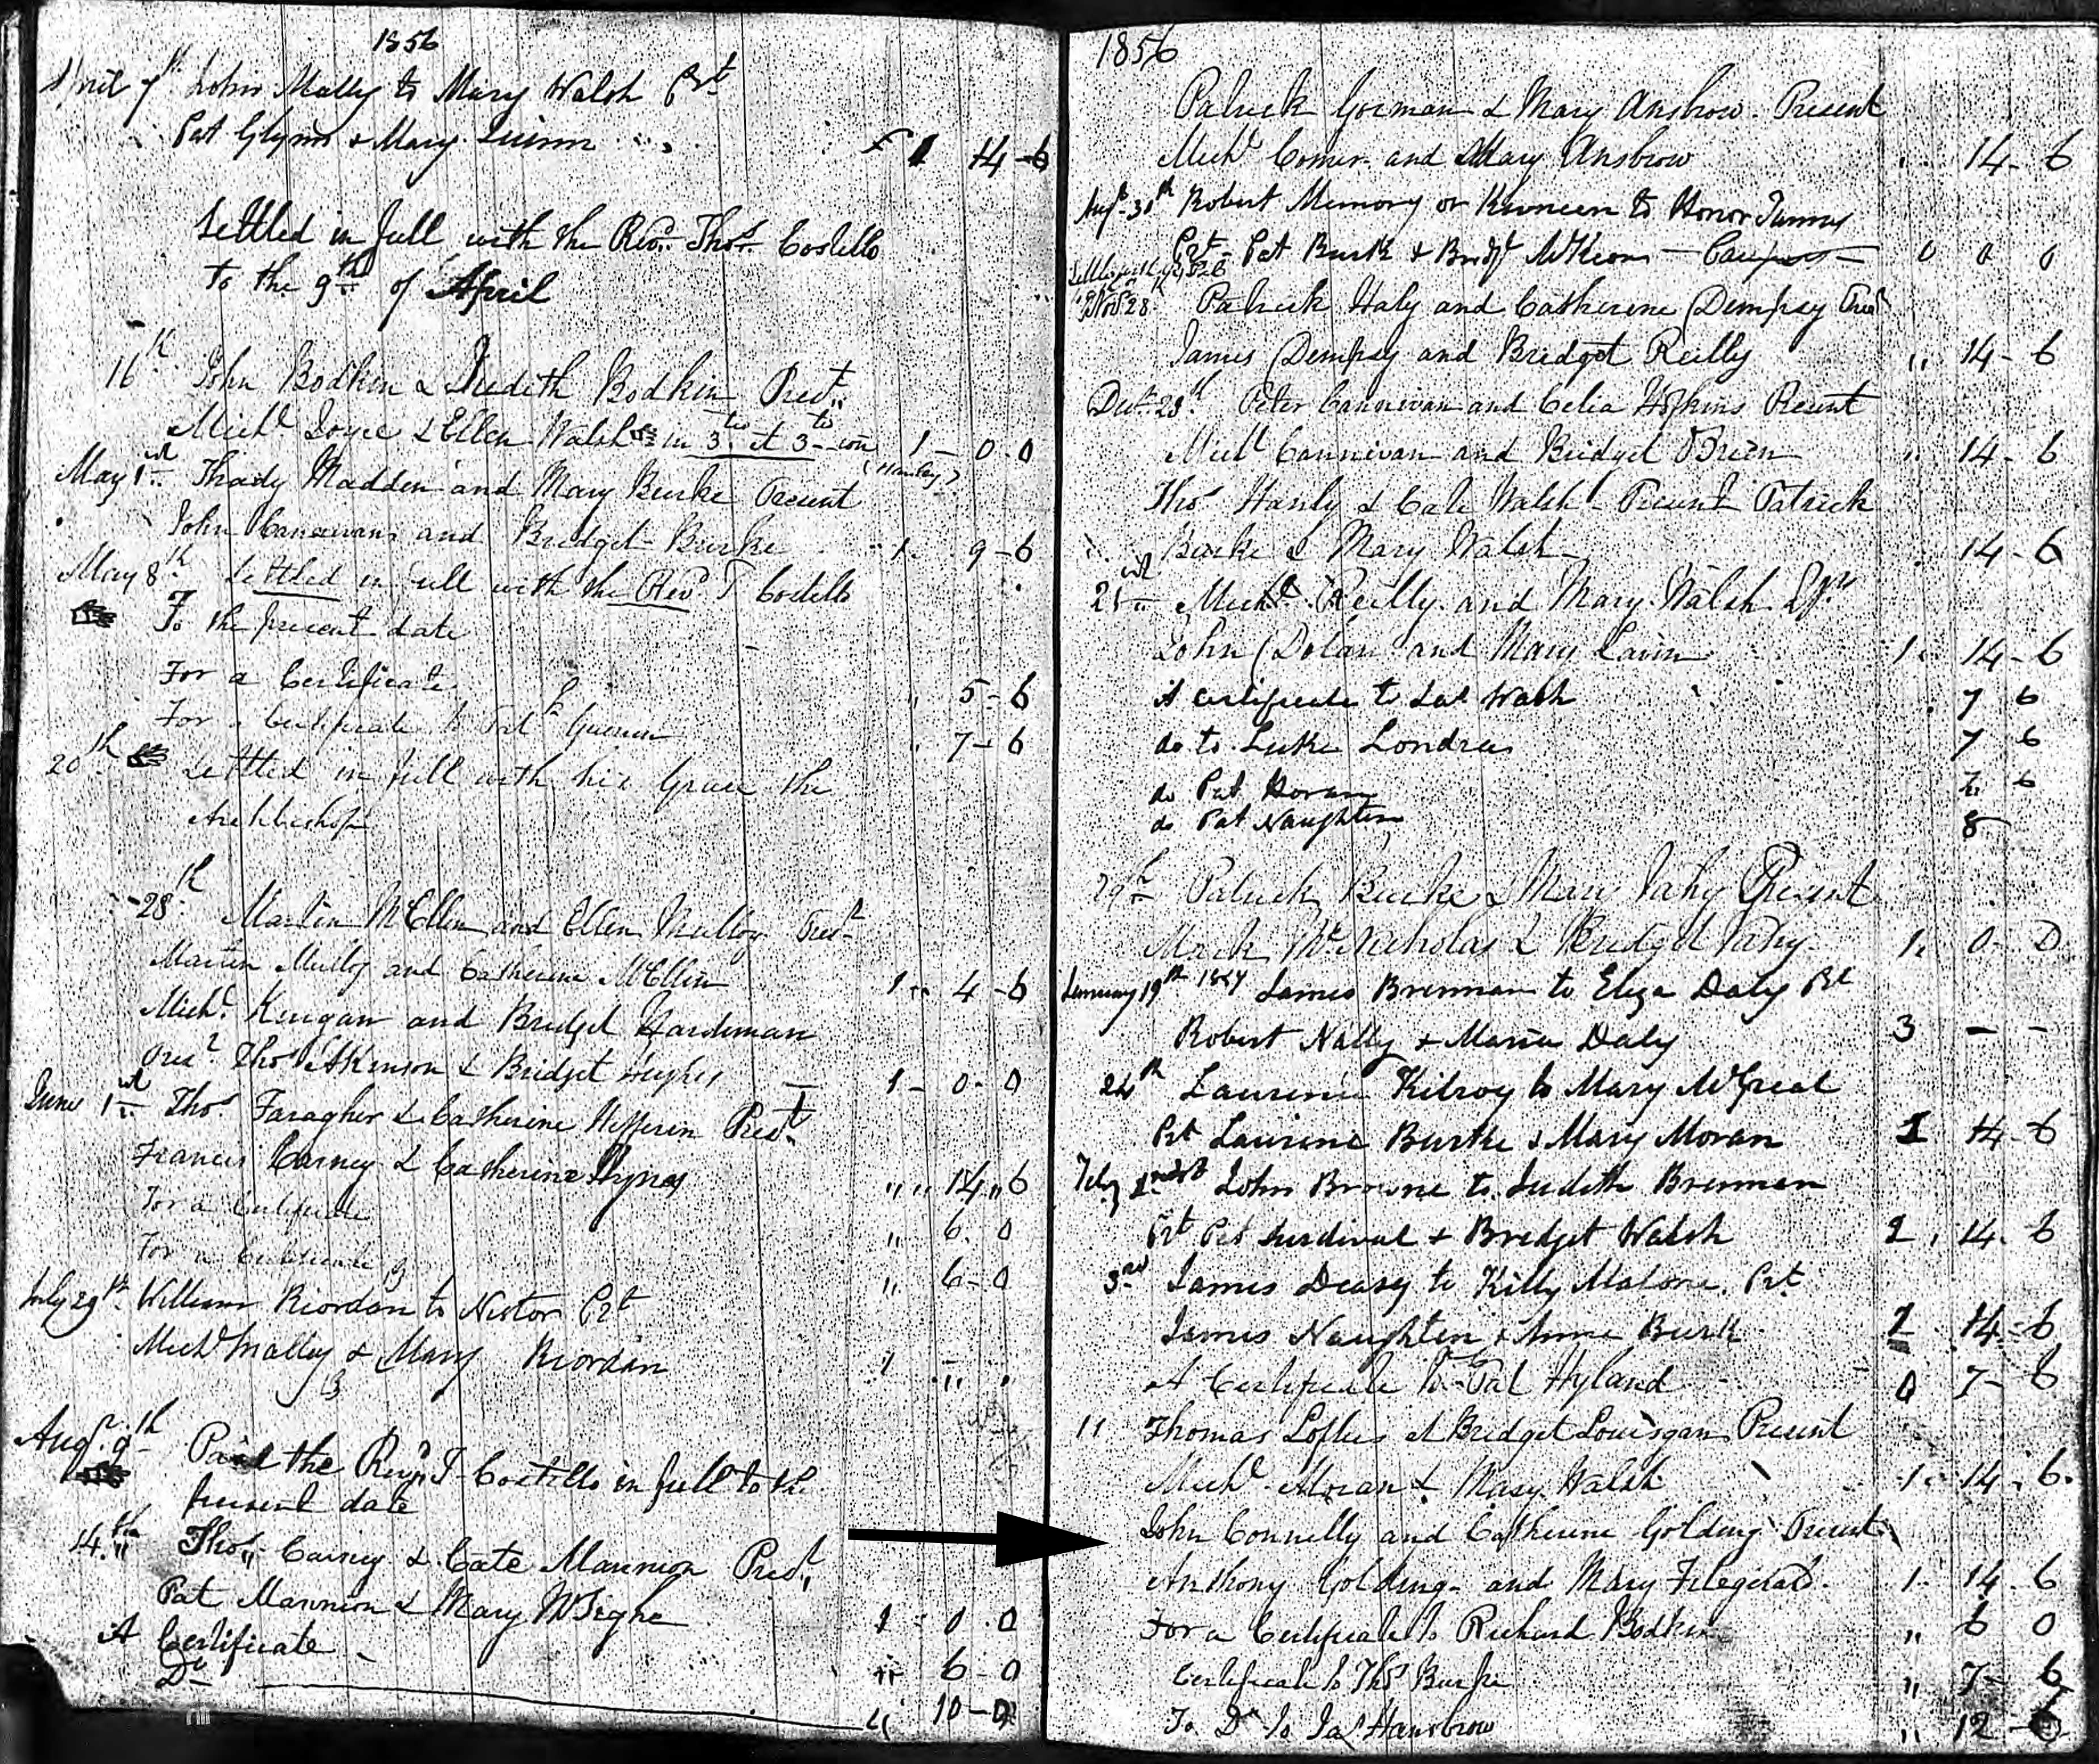 1856
April 7th John Mally to Mary Walsh Prt
Pat Glynn & Mary Quinn £ 1 14-6
Settled in full with the Revd. Thos. Costello
to the 9th of April
16th John Bodkin & Judith Bodkin Prest.
Michl Joyce & Ellen Walsh in 3tio et 3tio con 1-0-0
(Hanley)
May 1st Thady Madden and Mary Burke Present
John Cannavan and Bridget Burke 1. 9-6
May 8th Settled in full with the Revd. T Costello
To the present date
For a Certificate 5-6
For a Certificate to Patk 7-6
20th Settled in full with his Grace the
Archbishop
28th Martin McEllen and Ellen Mulloy Prest
Martin Mulloy and Catherine McEllin 1 4-6
Michl. Keegan and Bridget Hardiman
Prest Thos Atkinson & Bridget Hughes 1-0-0
June 1st Thos Faragher & Catherine Hefferin Prest.
Francis Carney & Catherine Hynes " " 14 " 6
For a Certificate " 6. 0
For a Certificate " 6-0
July 29th William Riordan to Nestor Prt
Michl Mally & Mary Riordan 1 " "
Augt. 9th Paid the Revd. T Costello in full to the
present date
14.th Thos. Carney & Cate Mannion Prest.
Pat Mannion & Mary 1-0.0
A Certificate 6-0
Do 10-0
1856
Patrick Gorman & Mary Ansbrow. Present
Michl Comer and Mary Ansbrow 14-6
Augt. 30th Robert Memory or Kivneen to Honor
Prt Pat Burk & Bridgt McKeon 0 0 0
Novr 28 Patrick Haly and Catherine Dempsey Prest
James Dempsey and Bridget Reilly " 14-6
Decr. 28th Peter Cannivan and Celia Hopkins Present
Michl Cannivan and Bridget OBrien 14-6
Thos Hanly & Cate Walsh Present Patrick
Burke & Mary Walsh 14-6
21st Michl. Reilly and Mary Walsh
John Dolan and Mary Lavin 1. 14-6
A certificate to Walsh 7 6
do to Luke Londra 7 6
do Pat Horan 6
do Pat Naughten 8
29th Patrick Burke & Mary Fahy Present
Mark McNicholas & Bridget Fahy 1. 0-0
January 19th James Brennan to Eliza Daly Prt
Robert Nally & Maria Daly 3 - -
24th Laurence Kilroy to Mary McGreal
Prt Laurence Burke & Mary Moran 1 14-6
Feby 1st John Browne to Judith Brennan
Prt Pat Surdival & Bridget Walsh 2. 14. 6
3rd James Deasy to Kitty Malone. Prt
James Naughten & Anne Burk 1 14-6
A Certificate to Pat Hyland 0 7-6
11 Thomas Loftus & Bridget Present
Michl. Moran & Mary Walsh 1. 14. 6.
John Connelly and Catherine Golding Present
Anthony Golding and Mary Fitzgerald. 1. 14. 6
For a Certificate to Richard Bodkin " 6 0
Certificate to Thos Burke " 7-6
To Do to Jas Hansbrow " 12-6